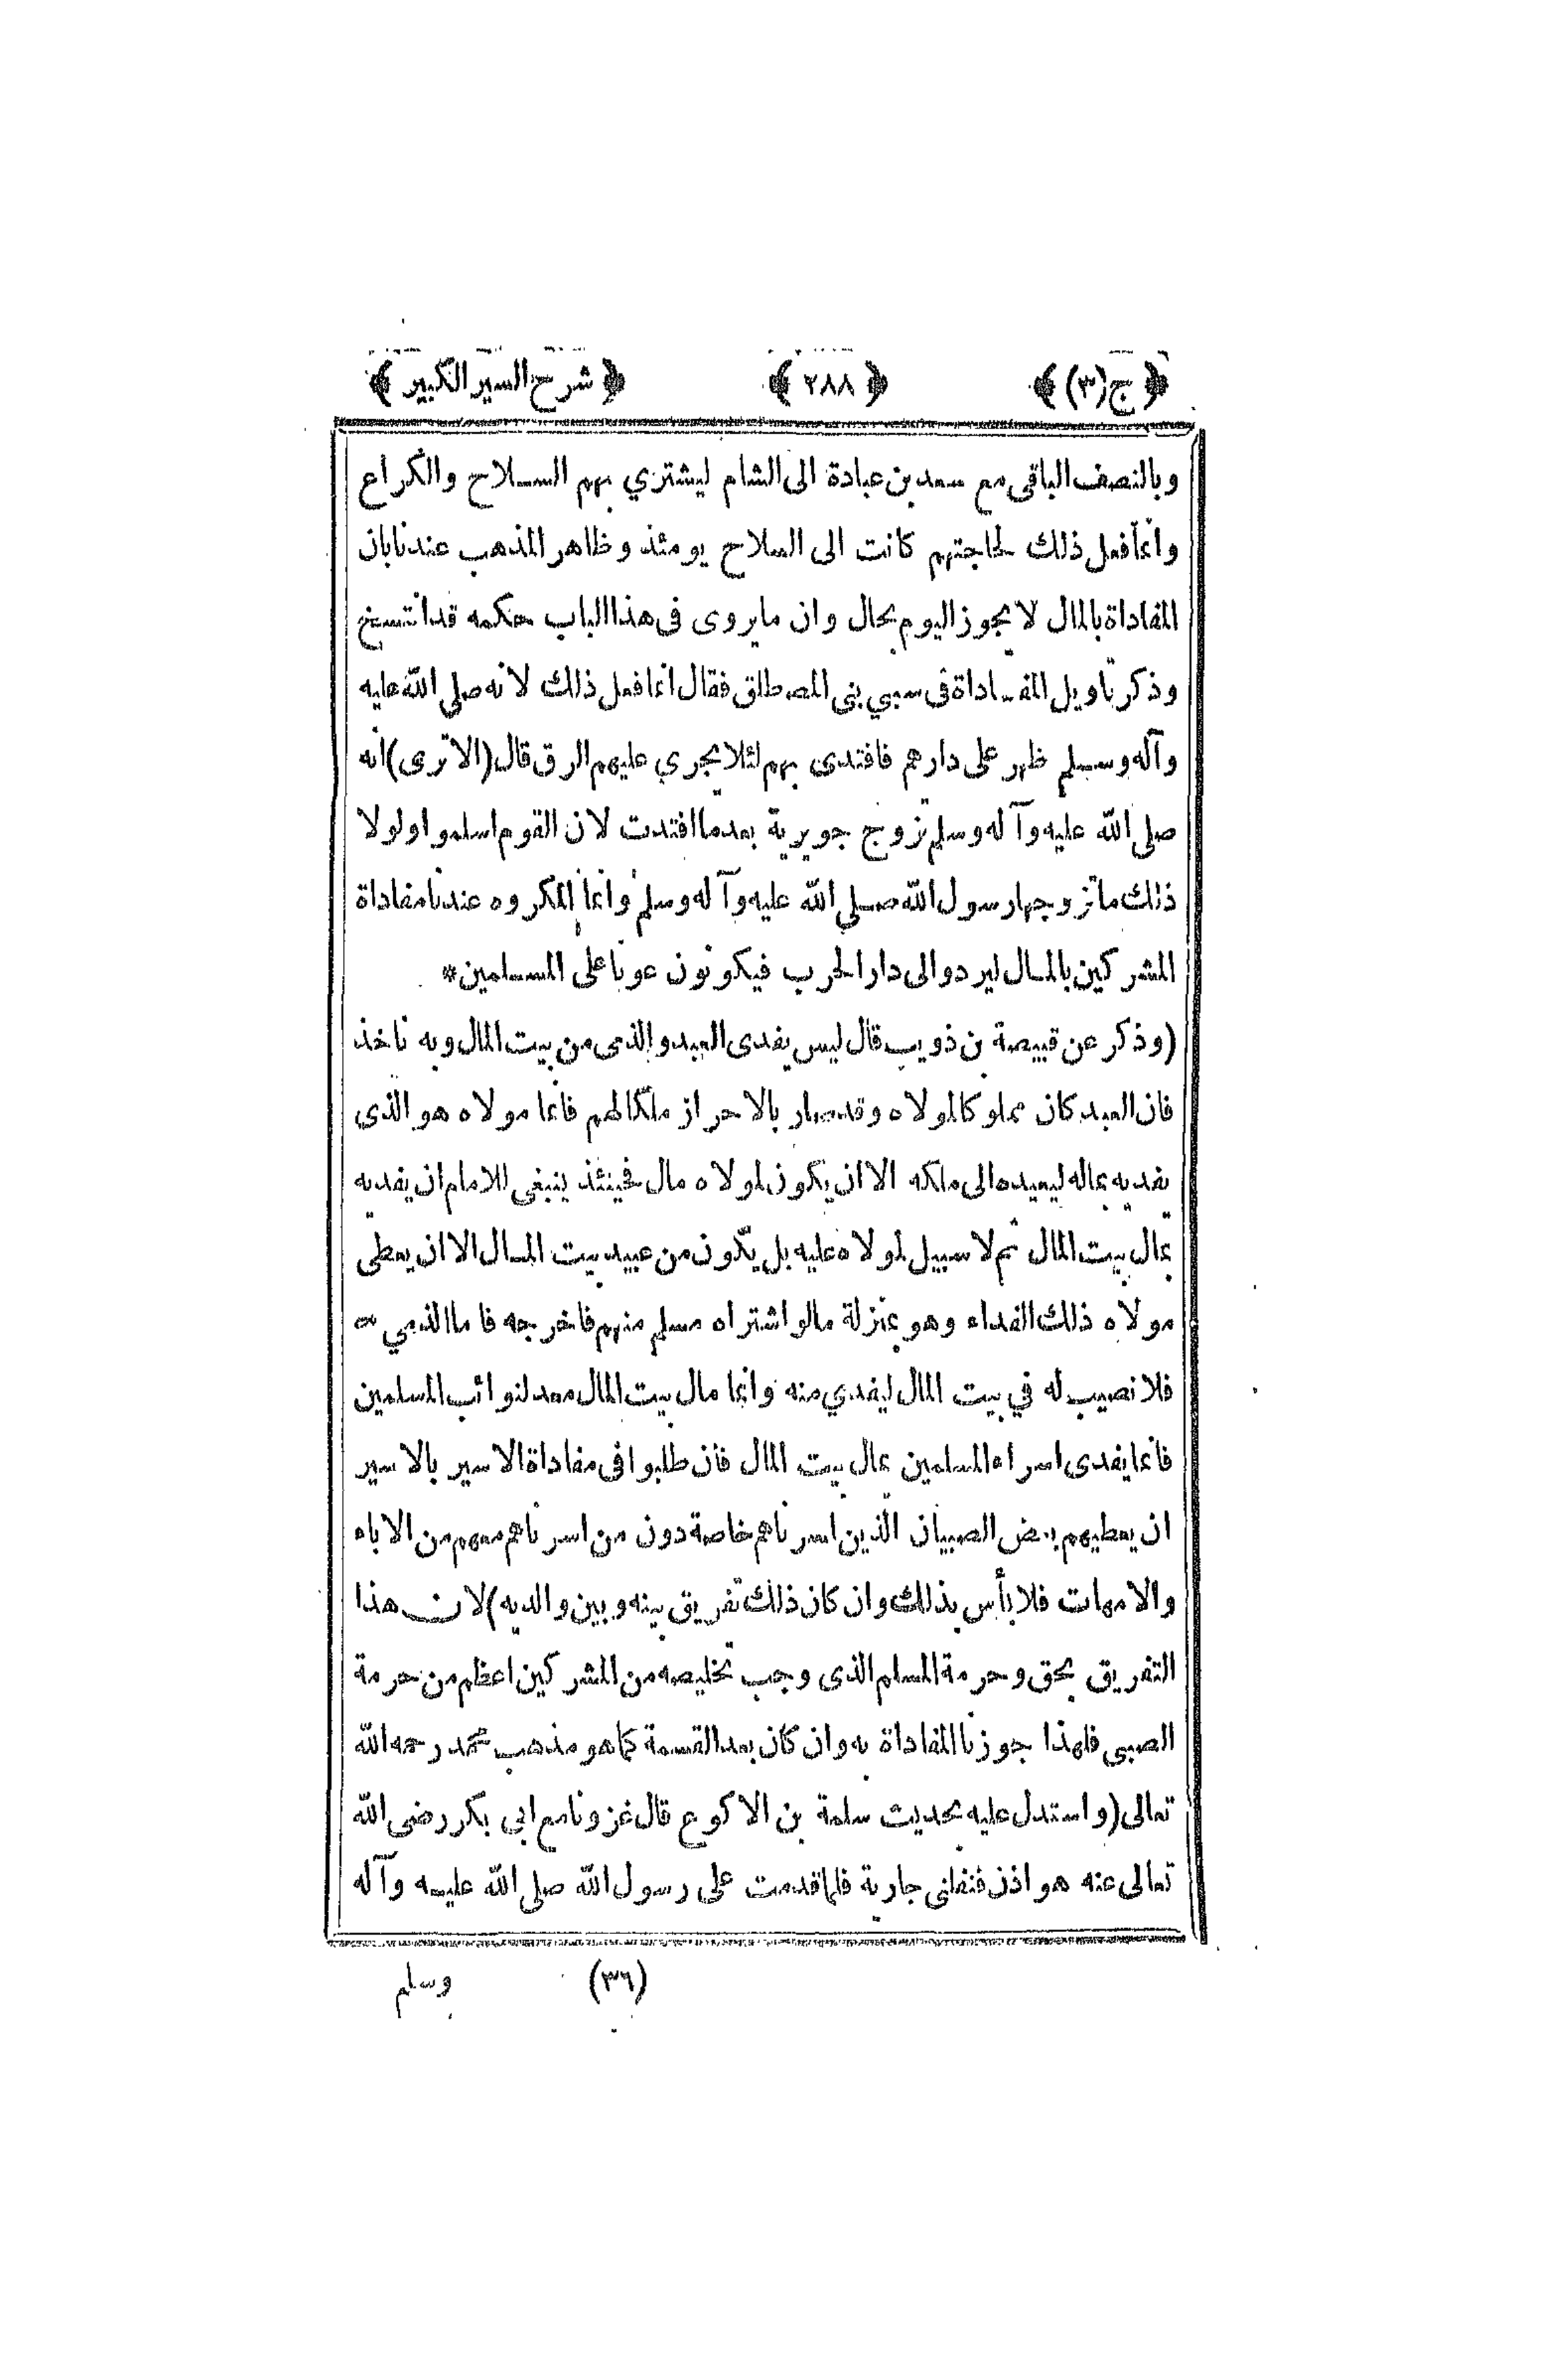 ﴿ ج (٣) ﴾ ﴿ ٢٨٨ ﴾ ﴿ شرح السير الكبير ﴾
وبالنصف الباقى مع سعد بن عبادة الى الشام ليشتري بهم السلاح والكراع
وانما فعل ذلك لحاجتهم كانت الى السلاح يومئذ وظاهر المذهب عندنا بان
المفاداة بالمال لا يجوز اليوم بحال وان ما يروى فى هذا الباب حكمه قد انتسخ
وذكر تاويل المفاداة فى سبي بنى المصطلق فقال انما فعل ذلك لانه صلى الله عليه
وآله وسلم ظهر على دارهم فافتدى بهم لئلا يجري عليهم الرق قال (الا ترى) انه
صلى الله عليه وآله وسلم تزوج جويرية بعد ما افتدت لان القوم اسلموا ولولا
ذلك ما تزوجها رسول الله صلى الله عليه وآله وسلم وانما المكروه عندنا مفاداة
المشركين بالمال ليردوا الى دار الحرب فيكونون عونا على المسلمين *
(وذكر عن قبيصة بن ذويب قال ليس يفدى العبد والذمى من بيت المال وبه ناخذ
فان العبد كان مملوكا لمولاه وقد صار بالاحراز ملكا لهم فانما مولاه هو الذى
يفديه بماله ليعيده الى ملكه الا ان يكون لمولاه مال فحينئذ ينبغى للامام ان يفديه
بمال بيت المال ثم لا سبيل لمولاه عليه بل يكون من عبيد بيت المال الا ان يعطى
مولاه ذلك الفداء وهو بمنزلة ما لو اشتراه مسلم منهم فاخرجه فاما الذمي
فلا نصيب له في بيت المال ليفدي منه وانما مال بيت المال معد لنوائب المسلمين
فانما يفدى اسراء المسلمين بمال بيت المال فان طلبوا فى مفاداة الاسير بالاسير
ان يعطيهم بعض الصبيان الذين اسرناهم خاصة دون من اسرناهم معهم من الاباء
والامهات فلا بأس بذلك وان كان ذلك تفريق بينه وبين والديه) لان هذا
التفريق بحق وحرمة المسلم الذى وجب تخليصه من المشركين اعظم من حرمة
الصبى فلهذا جوزنا المفاداة به وان كان بعد القسمة كما هو مذهب محمد رحمه الله
تعالى (واستدل عليه بحديث سلمة بن الاكوع قال غزونا مع ابى بكر رضى الله
تعالى عنه هو اذن فنفلنى جارية فلما قدمت على رسول الله صلى الله عليه وآله
(٣٦) وسلم